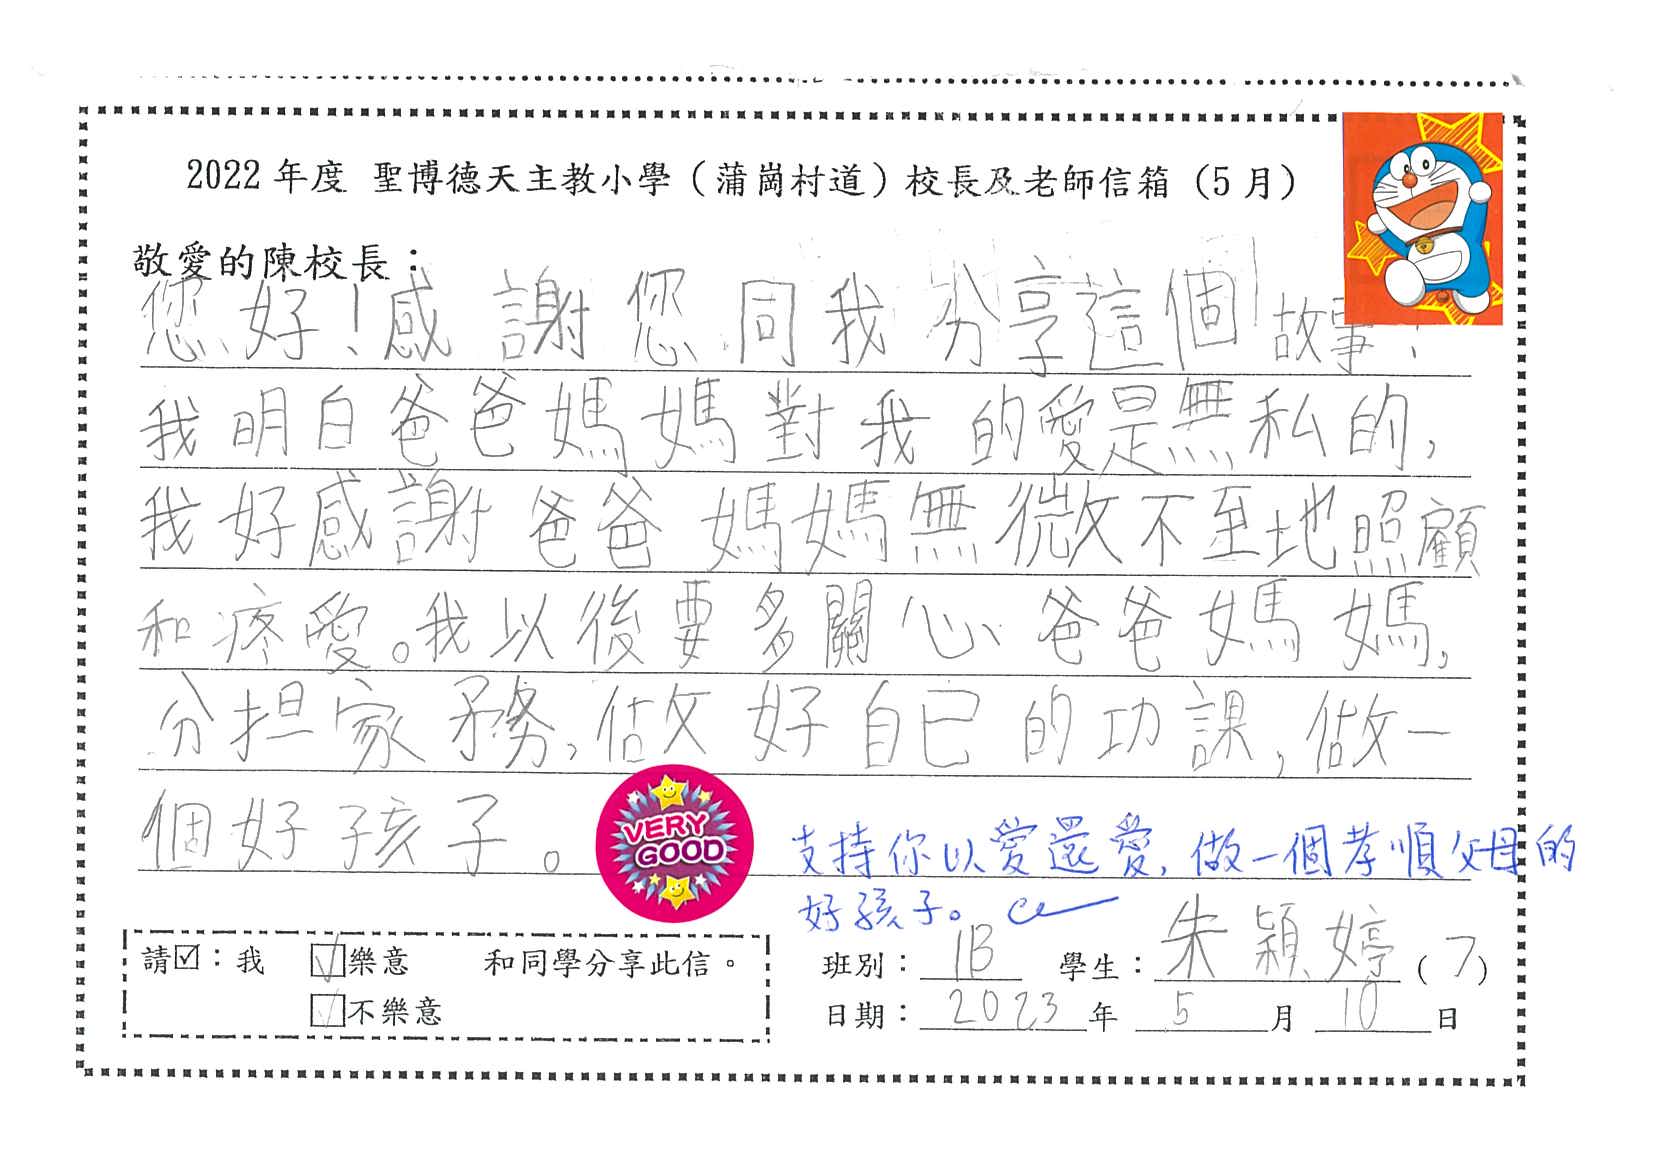 2022 年度 聖博德天主教小學（蒲崗村道）校長及老師信箱（5 月）
敬愛的陳校長：
您好！感謝您同我分享這個故事！
我明白爸爸媽媽對我的愛是無私的，
我好感謝爸爸媽媽無微不至地照顧
和疼愛。我以後要多關心爸爸媽媽，
分担家務，做好自己的功課，做一
個好孩子。
VERY
GOOD
支持你以愛還愛，做一個孝順父母的
好孩子。
請☑：我 ☑樂意 和同學分享此信。
□不樂意
班別：1B 學生：朱穎婷（7）
日期：2023年 5 月 10 日